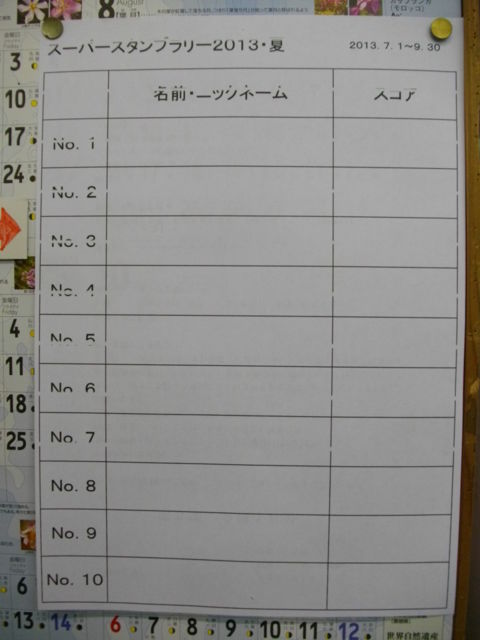 スーパースタンプラリー2013・夏
2013. 7. 1〜9. 30
名前・ニックネーム スコア
No. 1
No. 2
No. 3
No. 4
No. 5
No. 6
No. 7
No. 8
No. 9
No. 10
8 August
3
10
17
24
金曜日
Friday
4
11
18
25
金曜日
6
13 14 6 7 8 9 10 11 12
世界自然遺産